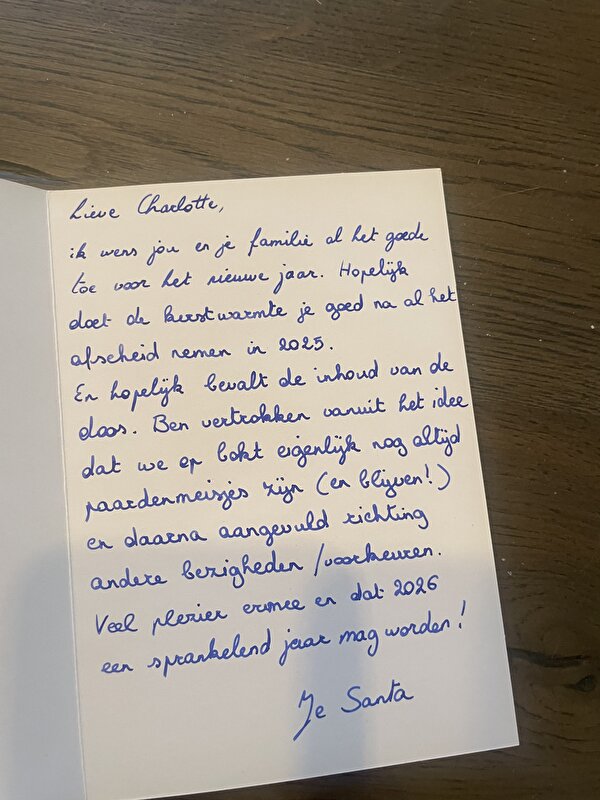 Lieve Charlotte,
ik wens jou en je familie al het goede
toe voor het nieuwe jaar. Hopelijk
doet de kerstwarmte je goed na al het
afscheid nemen in 2025.
En hopelijk bevalt de inhoud van de
doos. Ben vertrokken vanuit het idee
dat we op bokt eigenlijk nog altijd
paardenmeisjes zijn (en blijven!)
en daarna aangevuld richting
andere bezigheden/voorkeuren.
Veel plezier ermee en dat 2026
een sprankelend jaar mag worden!
Je Santa